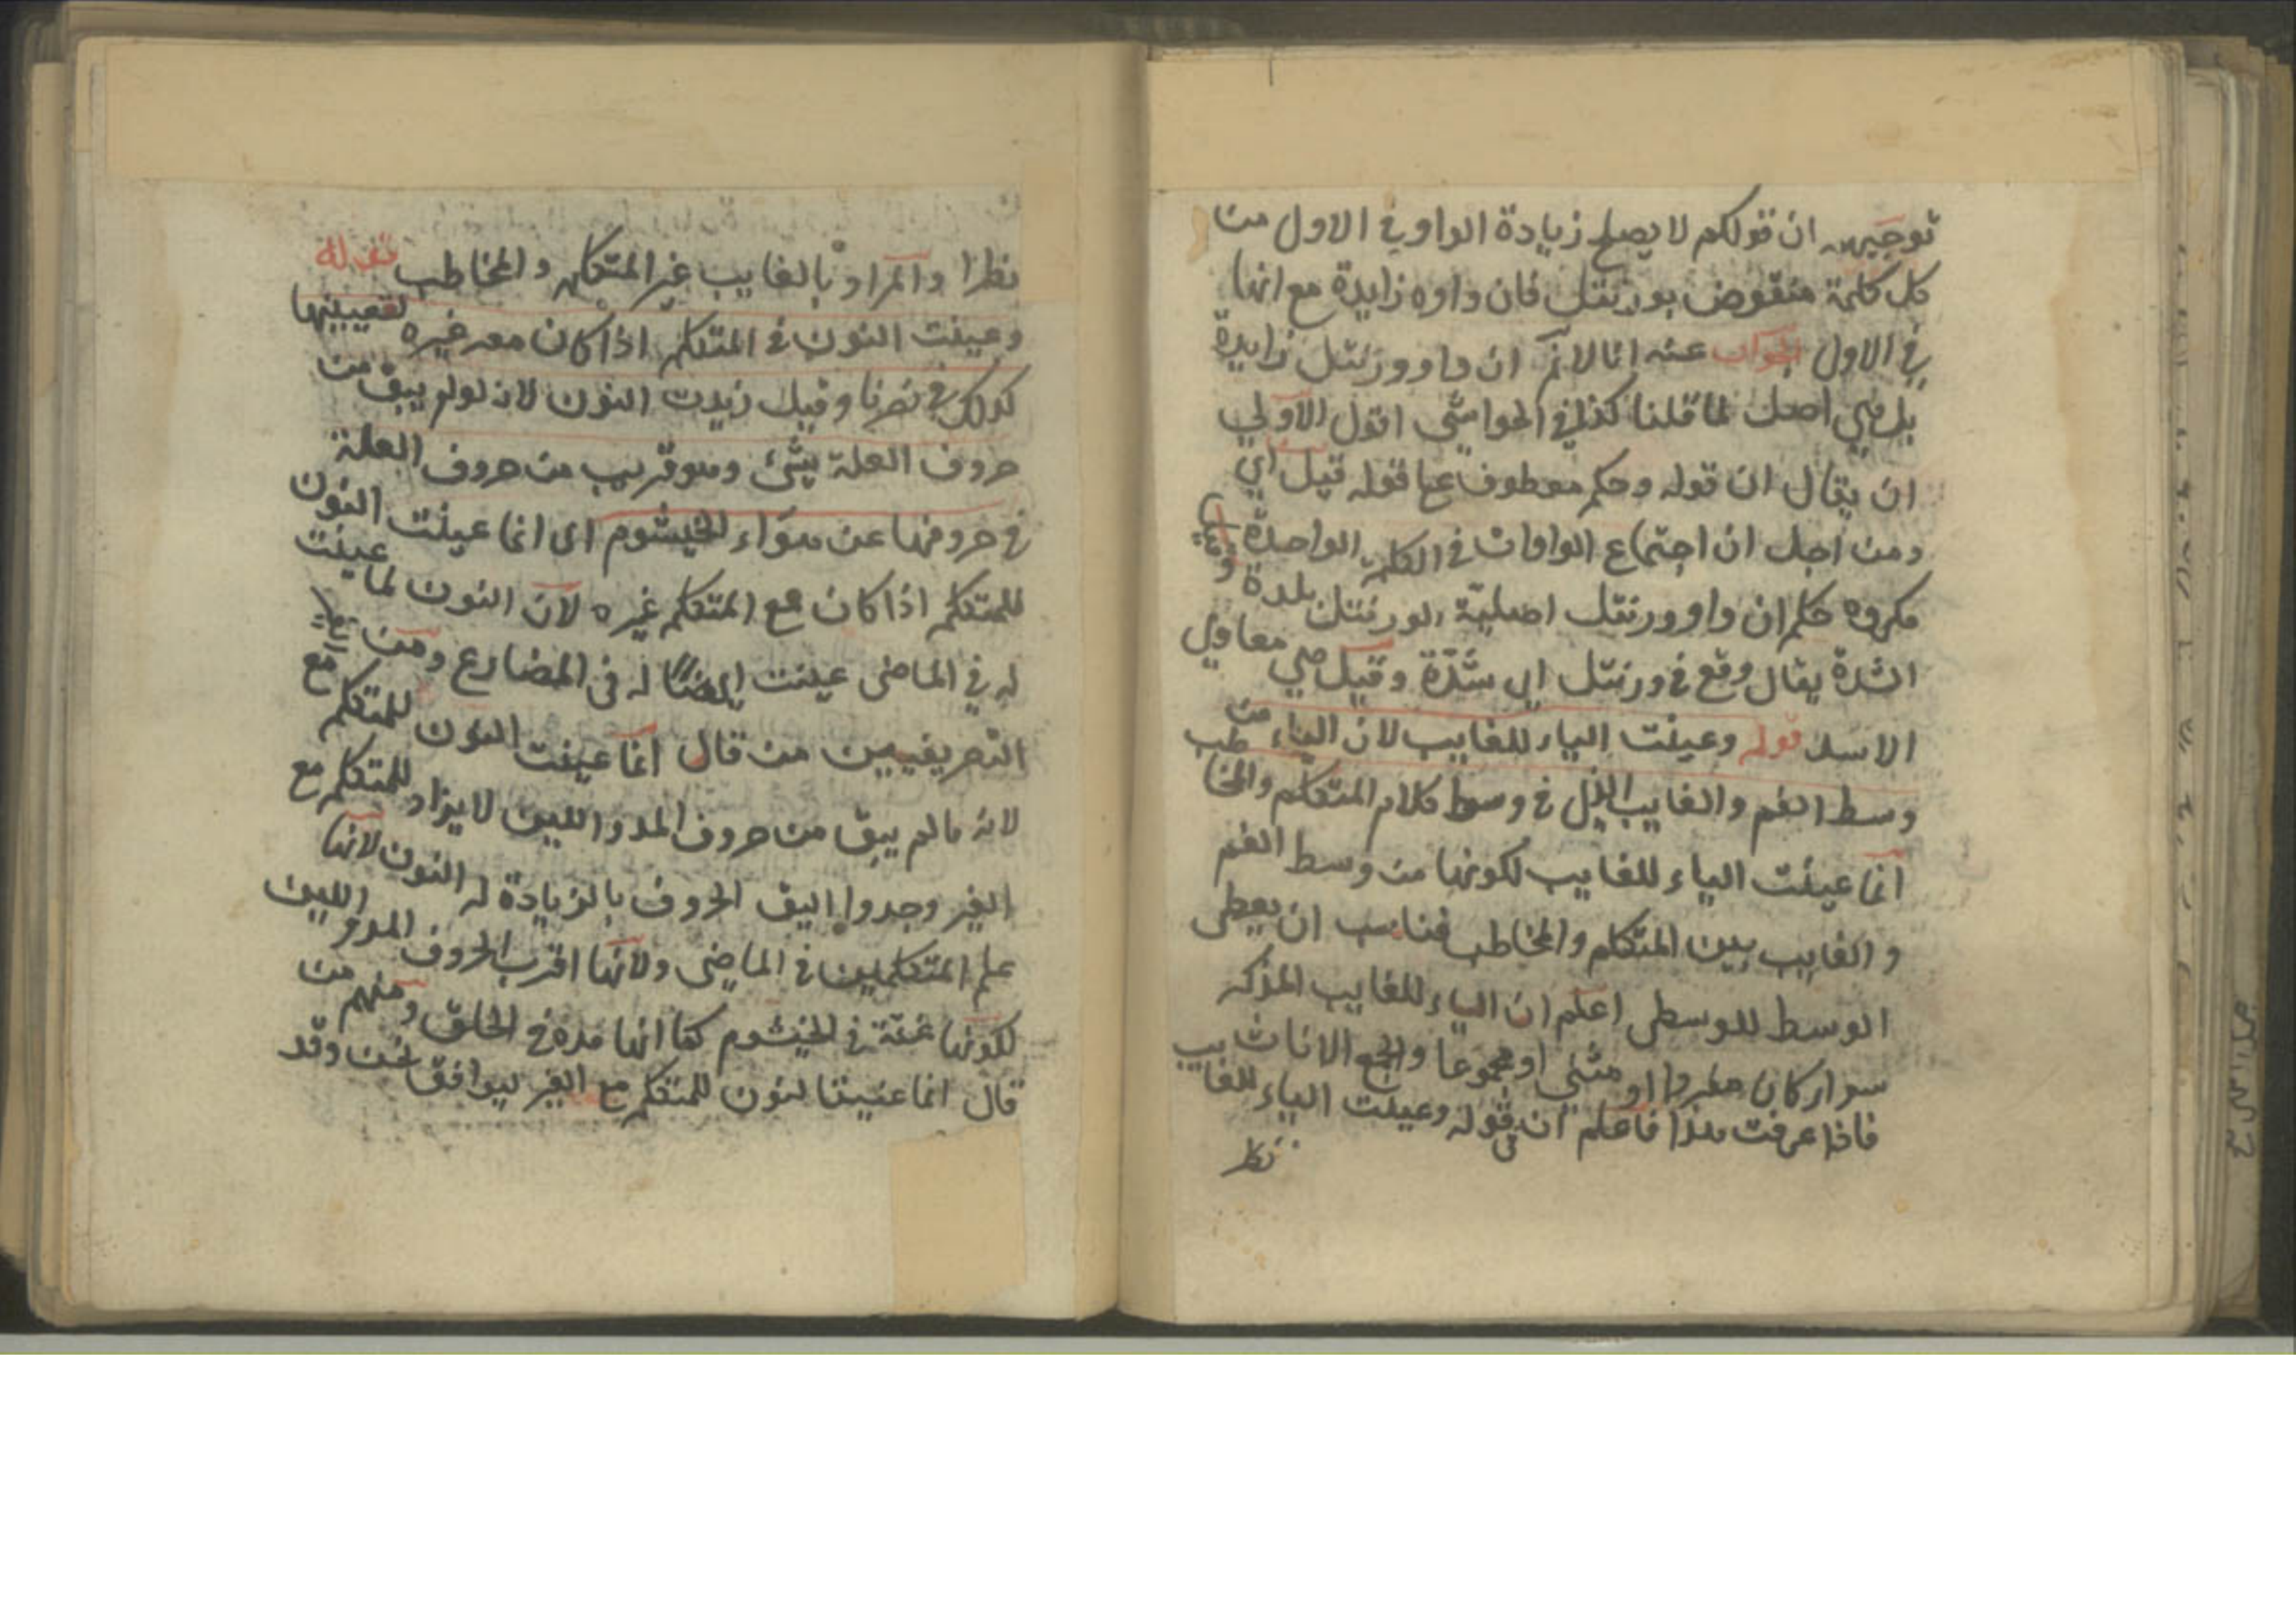 توجيهه ان قولكم لا يصلح زيادة الواو في الاول من
كل كلمة منقوض بورنتل فان واوه زايدة مع انها
في الاول الجواب عنه انا لانم ان واو ورنتل زايدة
بل هي اصل لما قلنا كذا في الحواشي اقول الاولي
ان يقال ان قوله وحكم معطوف علي قوله قيل اي
ومن اجل ان اجتماع الواوات في الكلمة الواحدة
مكروه حكم ان واو ورنتل اصلية الورنتل بلدة و
الشدة يقال وقع في ورنتل اي شدة وقيل هي معاول
الاسد قوله وعينت الياء للغايب لان الياء من
وسط الفم والغايب الذي في وسط كلام المتكلم والمخاطب
انما عينت الياء للغايب لكونها من وسط الفم
والغايب بين المتكلم والمخاطب فناسب ان يعطى
الوسط للوسطى اعلم ان الياء للغايب المذكر
سواء كان مفردا او مثنى او مجموعا والجمع الاناث
فاذا عرفت هذا فاعلم ان في قوله وعينت الياء للغايب
نظر
نظرا والمراد بالغايب غير المتكلم والمخاطب قوله
وعينت النون في المتكلم اذا كان معه غيره لتعيينها
كذلك في نصرنا وقيل زيدت النون لانه لو لم يبق من
حروف العلة شيء وهو قريب من حروف العلة
في خروجها عن هواء الخيشوم اى انما عينت النون
للمتكلم اذا كان مع المتكلم غيره لان النون لما عينت
له في الماضى عينت ايضا له فى المضارع ومن
التصريفيين من قال انما عينت النون للمتكلم مع
لانه ما لم يبق من حروف المد واللين لا يزاد للمتكلم مع
الغير وجدوا اليق الحروف بالزيادة له النون لانها
علم المتكلمين في الماضى ولانها اقرب الحروف المد و اللين
لكونها غنة في الخيشوم كما انها مدة في الحلق ومنهم من
قال انما عينت النون للمتكلم مع الغير ليوافق نحن وقد